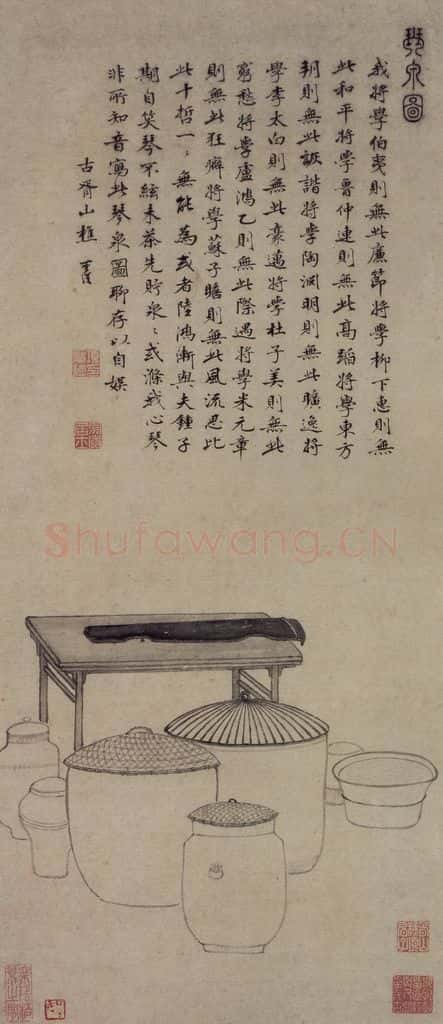 琴泉圖
我將學伯夷則無此廉節將學柳下惠則無
此和平將學魯仲連則無此高蹈將學東方
朔則無此詼諧將學陶淵明則無此曠逸將
學李太白則無此豪邁將學杜子美則無此
窮愁將學盧鴻乙則無此際遇將學米元章
則無此狂癖將學蘇子瞻則無此風流思比
此十哲一〻無能為或者陸鴻漸與夫鍾子
期自笑琴不絃未茶先貯泉〻或滌我心琴
非所知音寫此琴泉圖聊存以自娛
古胥山樵
Shufawang.CN